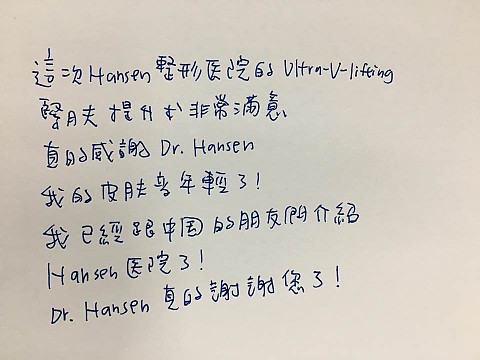 這次Hansen整形医院的Ultra-V-lifting
緊膚提升对非常滿意
真的感謝Dr. Hansen
我的皮肤变年輕了!
我已經跟中国的朋友們介紹
Hansen医院了!
Dr. Hansen真的謝謝您了!